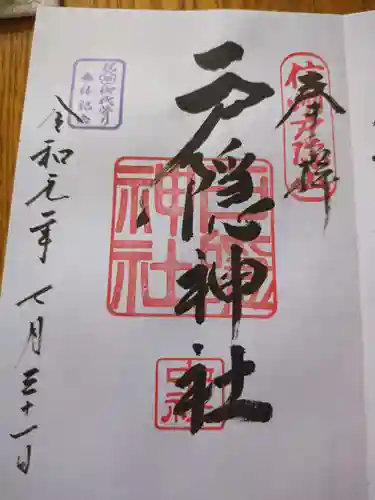 奉拝
戸隠神社
戸隠神社
中社
令和元年七月三十一日